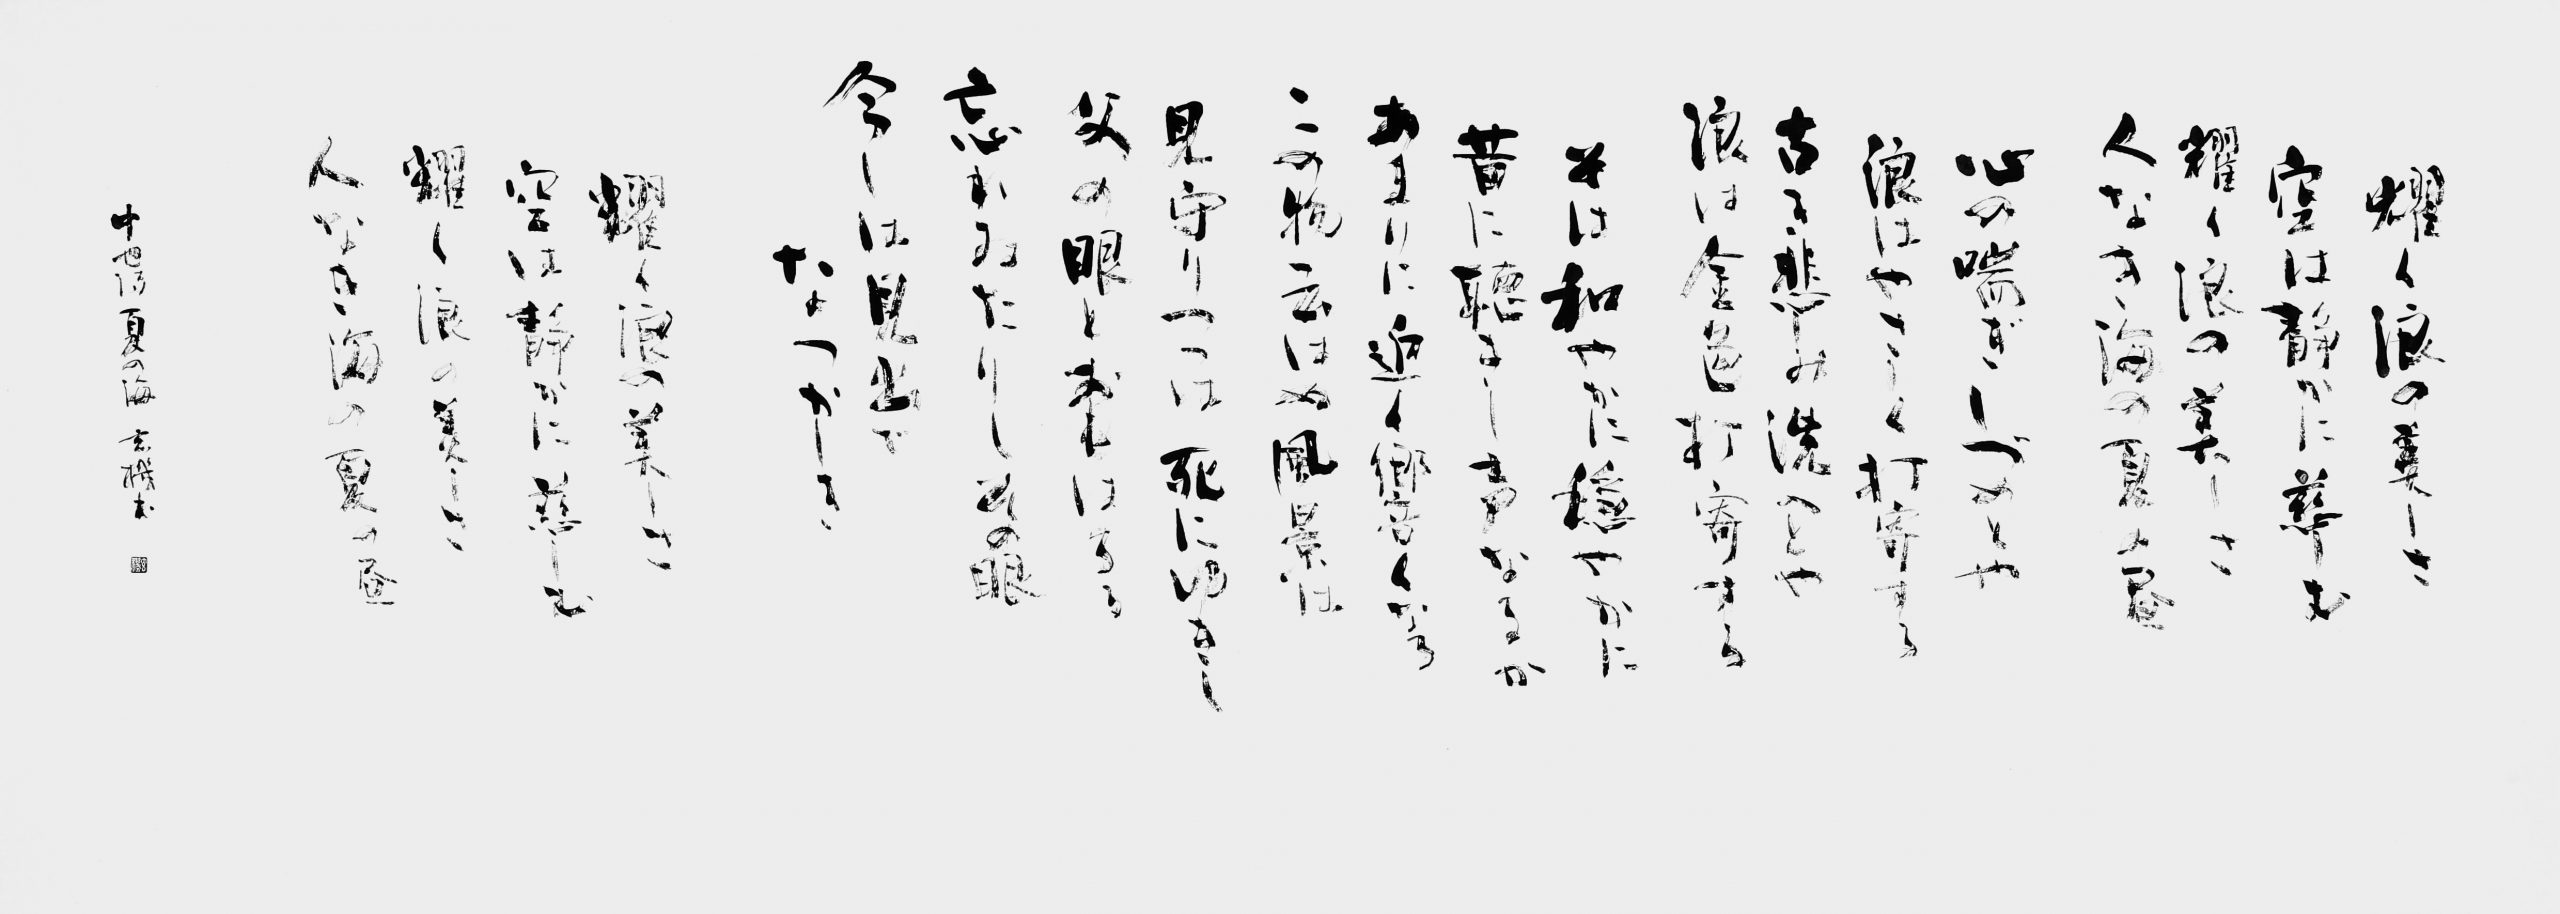 耀く浪の美しさ
空は静かに慈しむ
耀く浪の美しさ
人なき海の夏の昼
心の喘ぎしづめとや
浪はやさしく打寄する
古き悲しみ洗へとや
浪は金色打寄する
そは和やかに穏やかに
昔に聴きし声なるか
あまりに近く響くなる
この物云はぬ風景は
見守りつつは死にゆきし
父の眼とおもはるる
忘れゐたりしその眼
今しは見出で
なつかしき
耀く浪の美しさ
空は静かに慈しむ
耀く浪の美しさ
人なき海の夏の昼
中也詩 夏の海